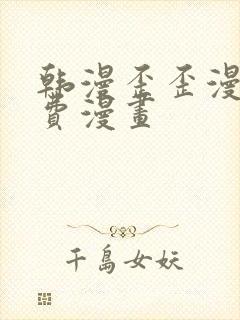 韩漫歪歪漫
費漫畫
千島女妖